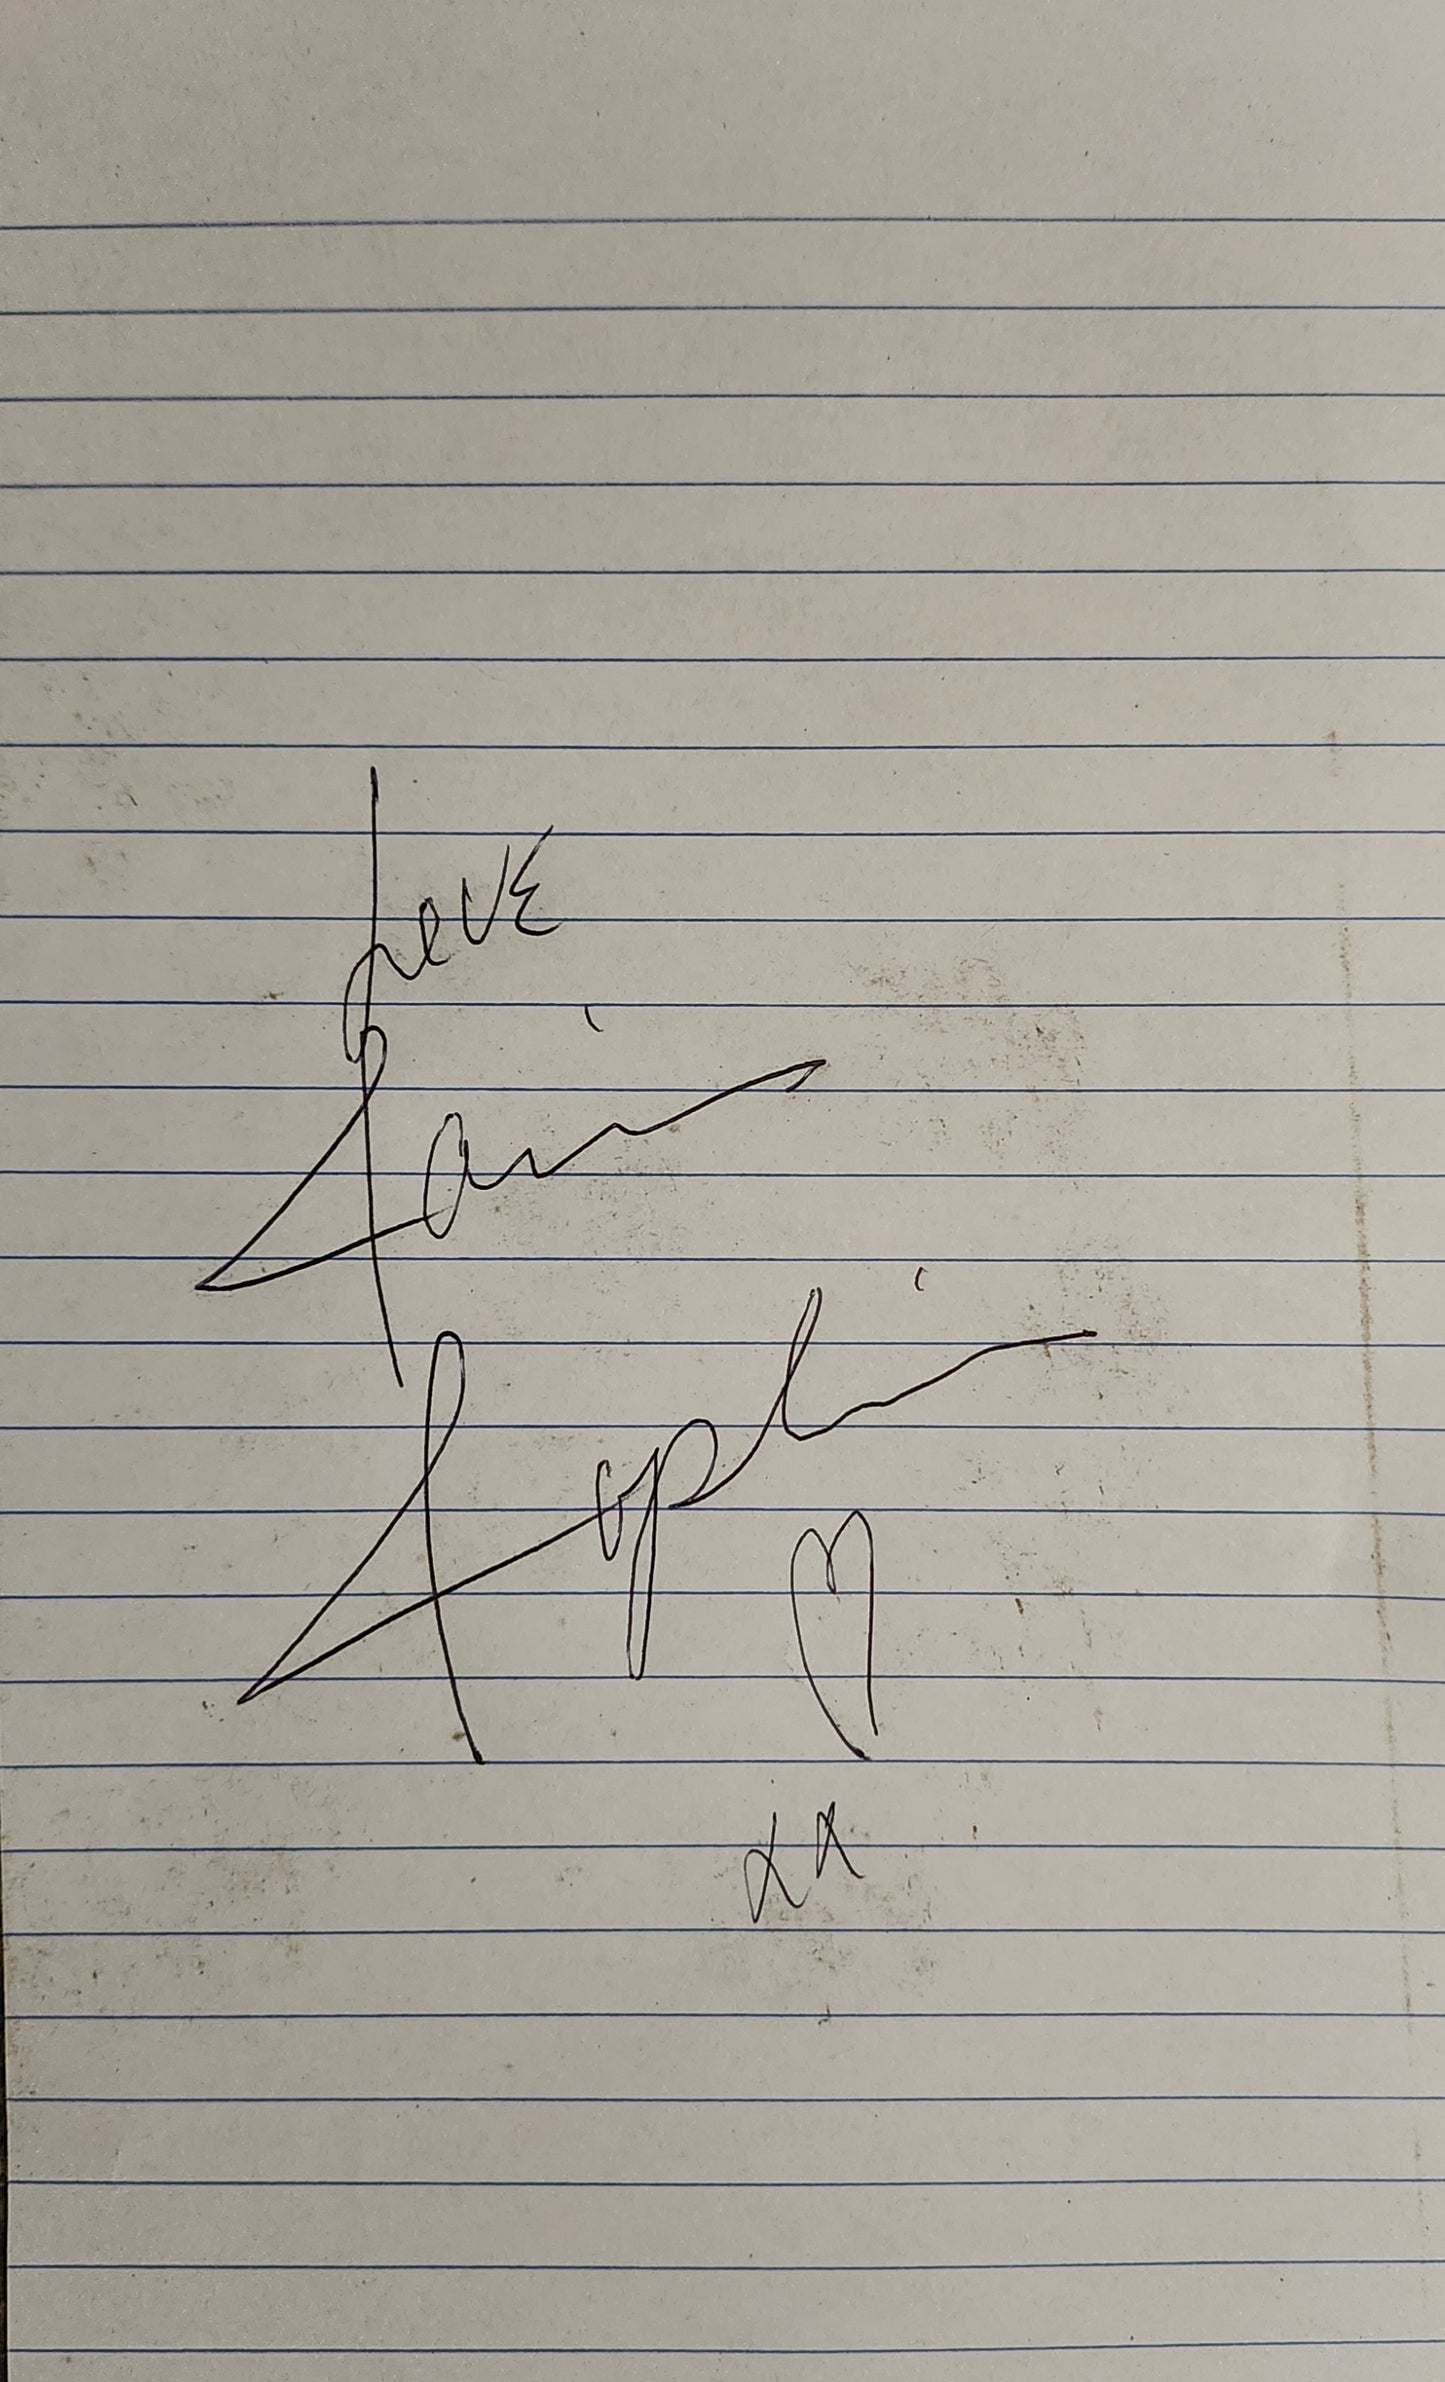 Love
Janis
Joplin
xx